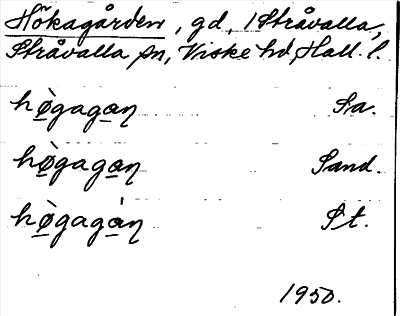 Hökagården, gd, 1 Stråvalla,
Stråvalla sn, Viske hd, Hall. l.
hø̀gagan̨ Sa.
hø̀gagan̨ Sand.
hø̀gagán̨ St.
1950.